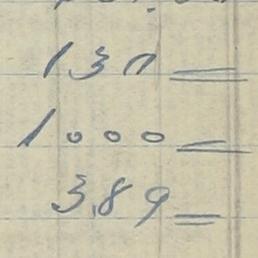 130 =
1000 =
3,89 =